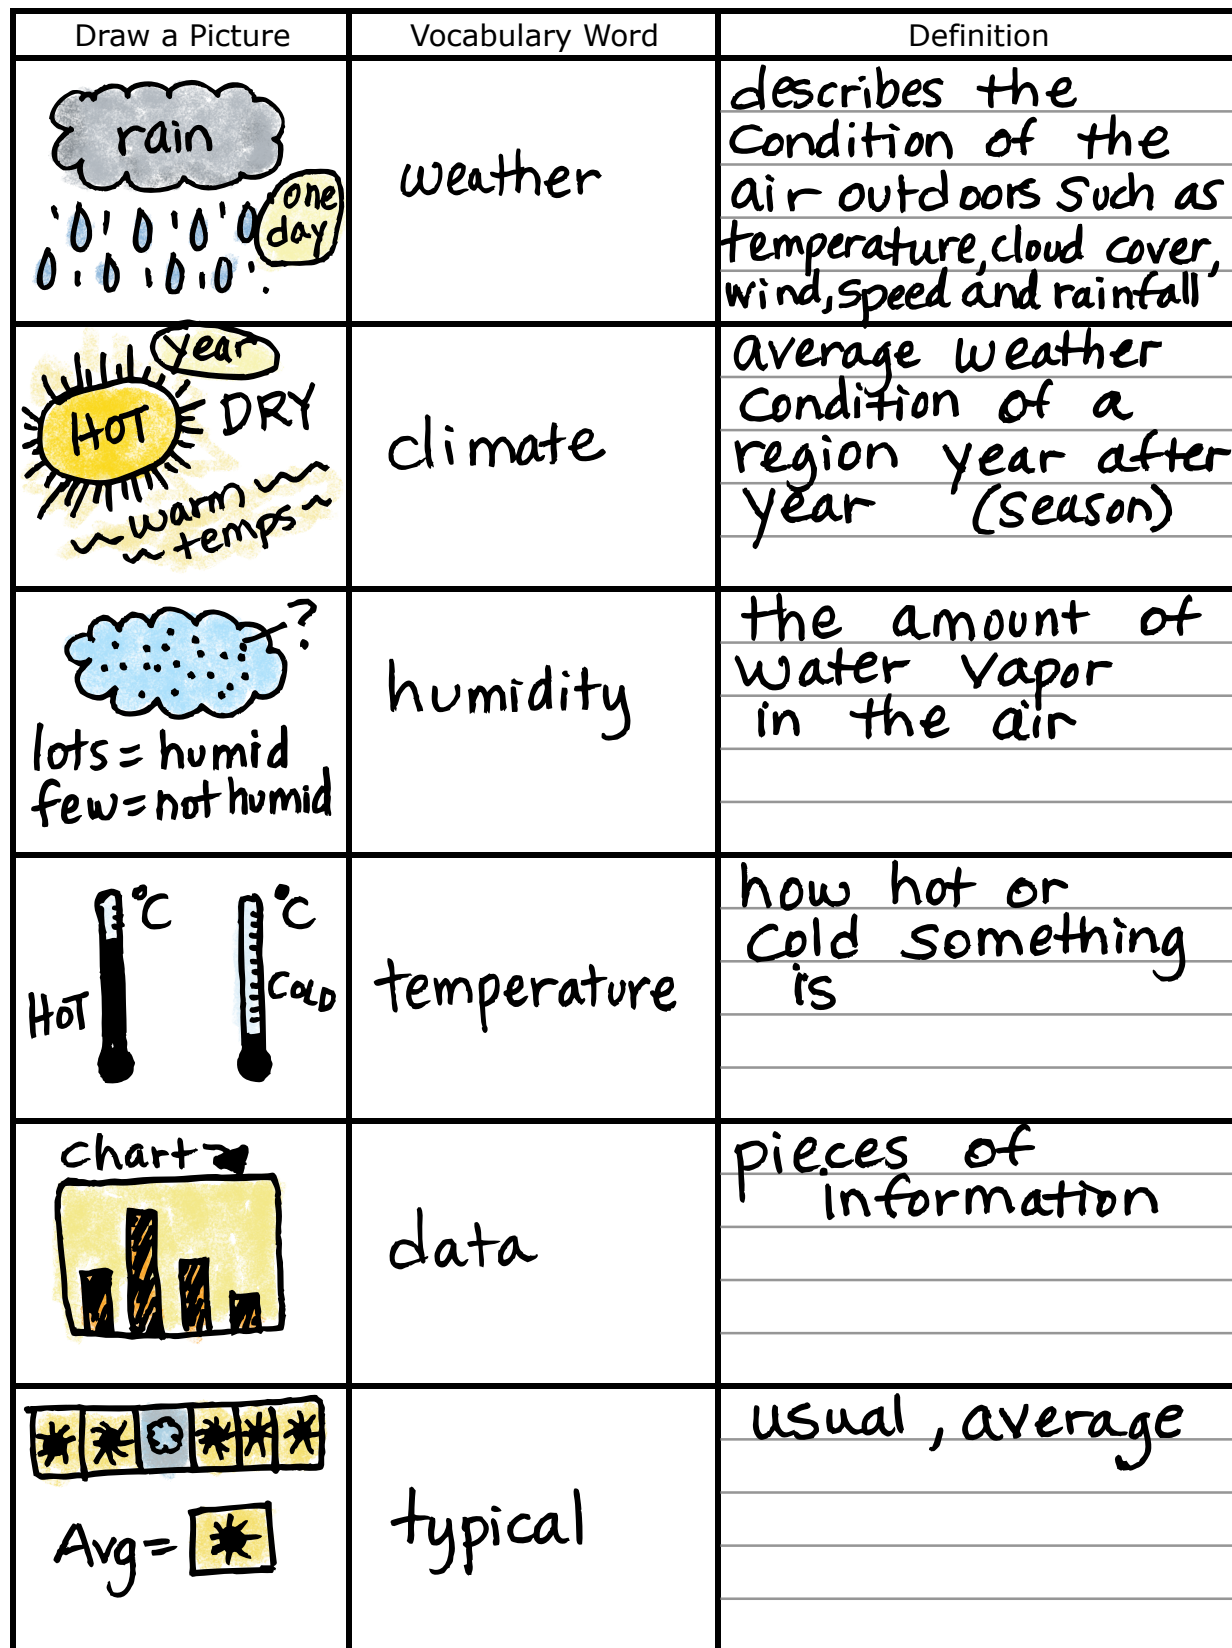 Draw a Picture
Vocabulary Word
Definition
rain
one
day
weather
describes the
condition of the
air outdoors such as
temperature, cloud cover,
wind, speed and rainfall
year
HOT
DRY
warm
temps
climate
average weather
condition of a
region year after
year (season)
?
lots = humid
few = not humid
humidity
the amount of
water vapor
in the air
°C
°C
HOT
COLD
temperature
how hot or
cold something
is
chart
data
pieces of
information
Avg =
typical
usual, average